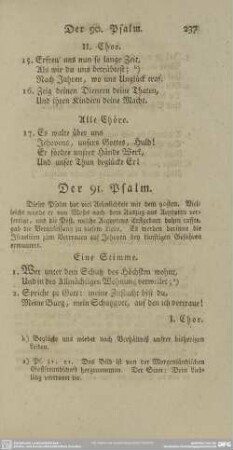 Der 90. Psalm. 237
II. Chor.
15. Erfreu' uns nun so lange Zeit,
Als wir du uns betrübtest; ᵇ)
Nach Jahren, wo uns Unglück traf.
16. Zeig deinen Dienern deine Thaten,
Und ihren Kindern deine Macht.
Alle Chöre.
17. Es walte über uns
Jehovens, unsers Gottes, Huld!
Er förder unsrer Hände Werk,
Und unser Thun beglücke Er!
Der 91. Psalm.
Dieser Psalm hat viel Aehnlichkeit mit dem 90sten. Viel-
leicht wurde er von Mose nach dem Auszug aus Aegypten ver-
fertigt, und die Pest, welche Aegyptens Erstgeburt
gab die Veranlassung zu Es werden darinnen die
Israeliten zum Vertrauen auf Jehoven bey künftigen Gefahren
ermuntert.
Eine Stimme.
1. Wer unter dem Schutz des Höchsten wohnt,
Und in des Allmächtigen Wohnung verweilet; ᵃ)
2. Spricht zu Gott: meine Zuflucht bist du,
Meine Burg, mein Schutzgott, auf den ich vertraue!
I. Chor.
b) Beglücke uns wieder nach Verhältniß unsrer bisherigen
Leiden.
a) Ps. 31, 21. Das Bild ist von der Morgenländischen
Gastfreundschaft hergenommen. Der Sinn: Dein Lieb-
ling vertrauet dir.